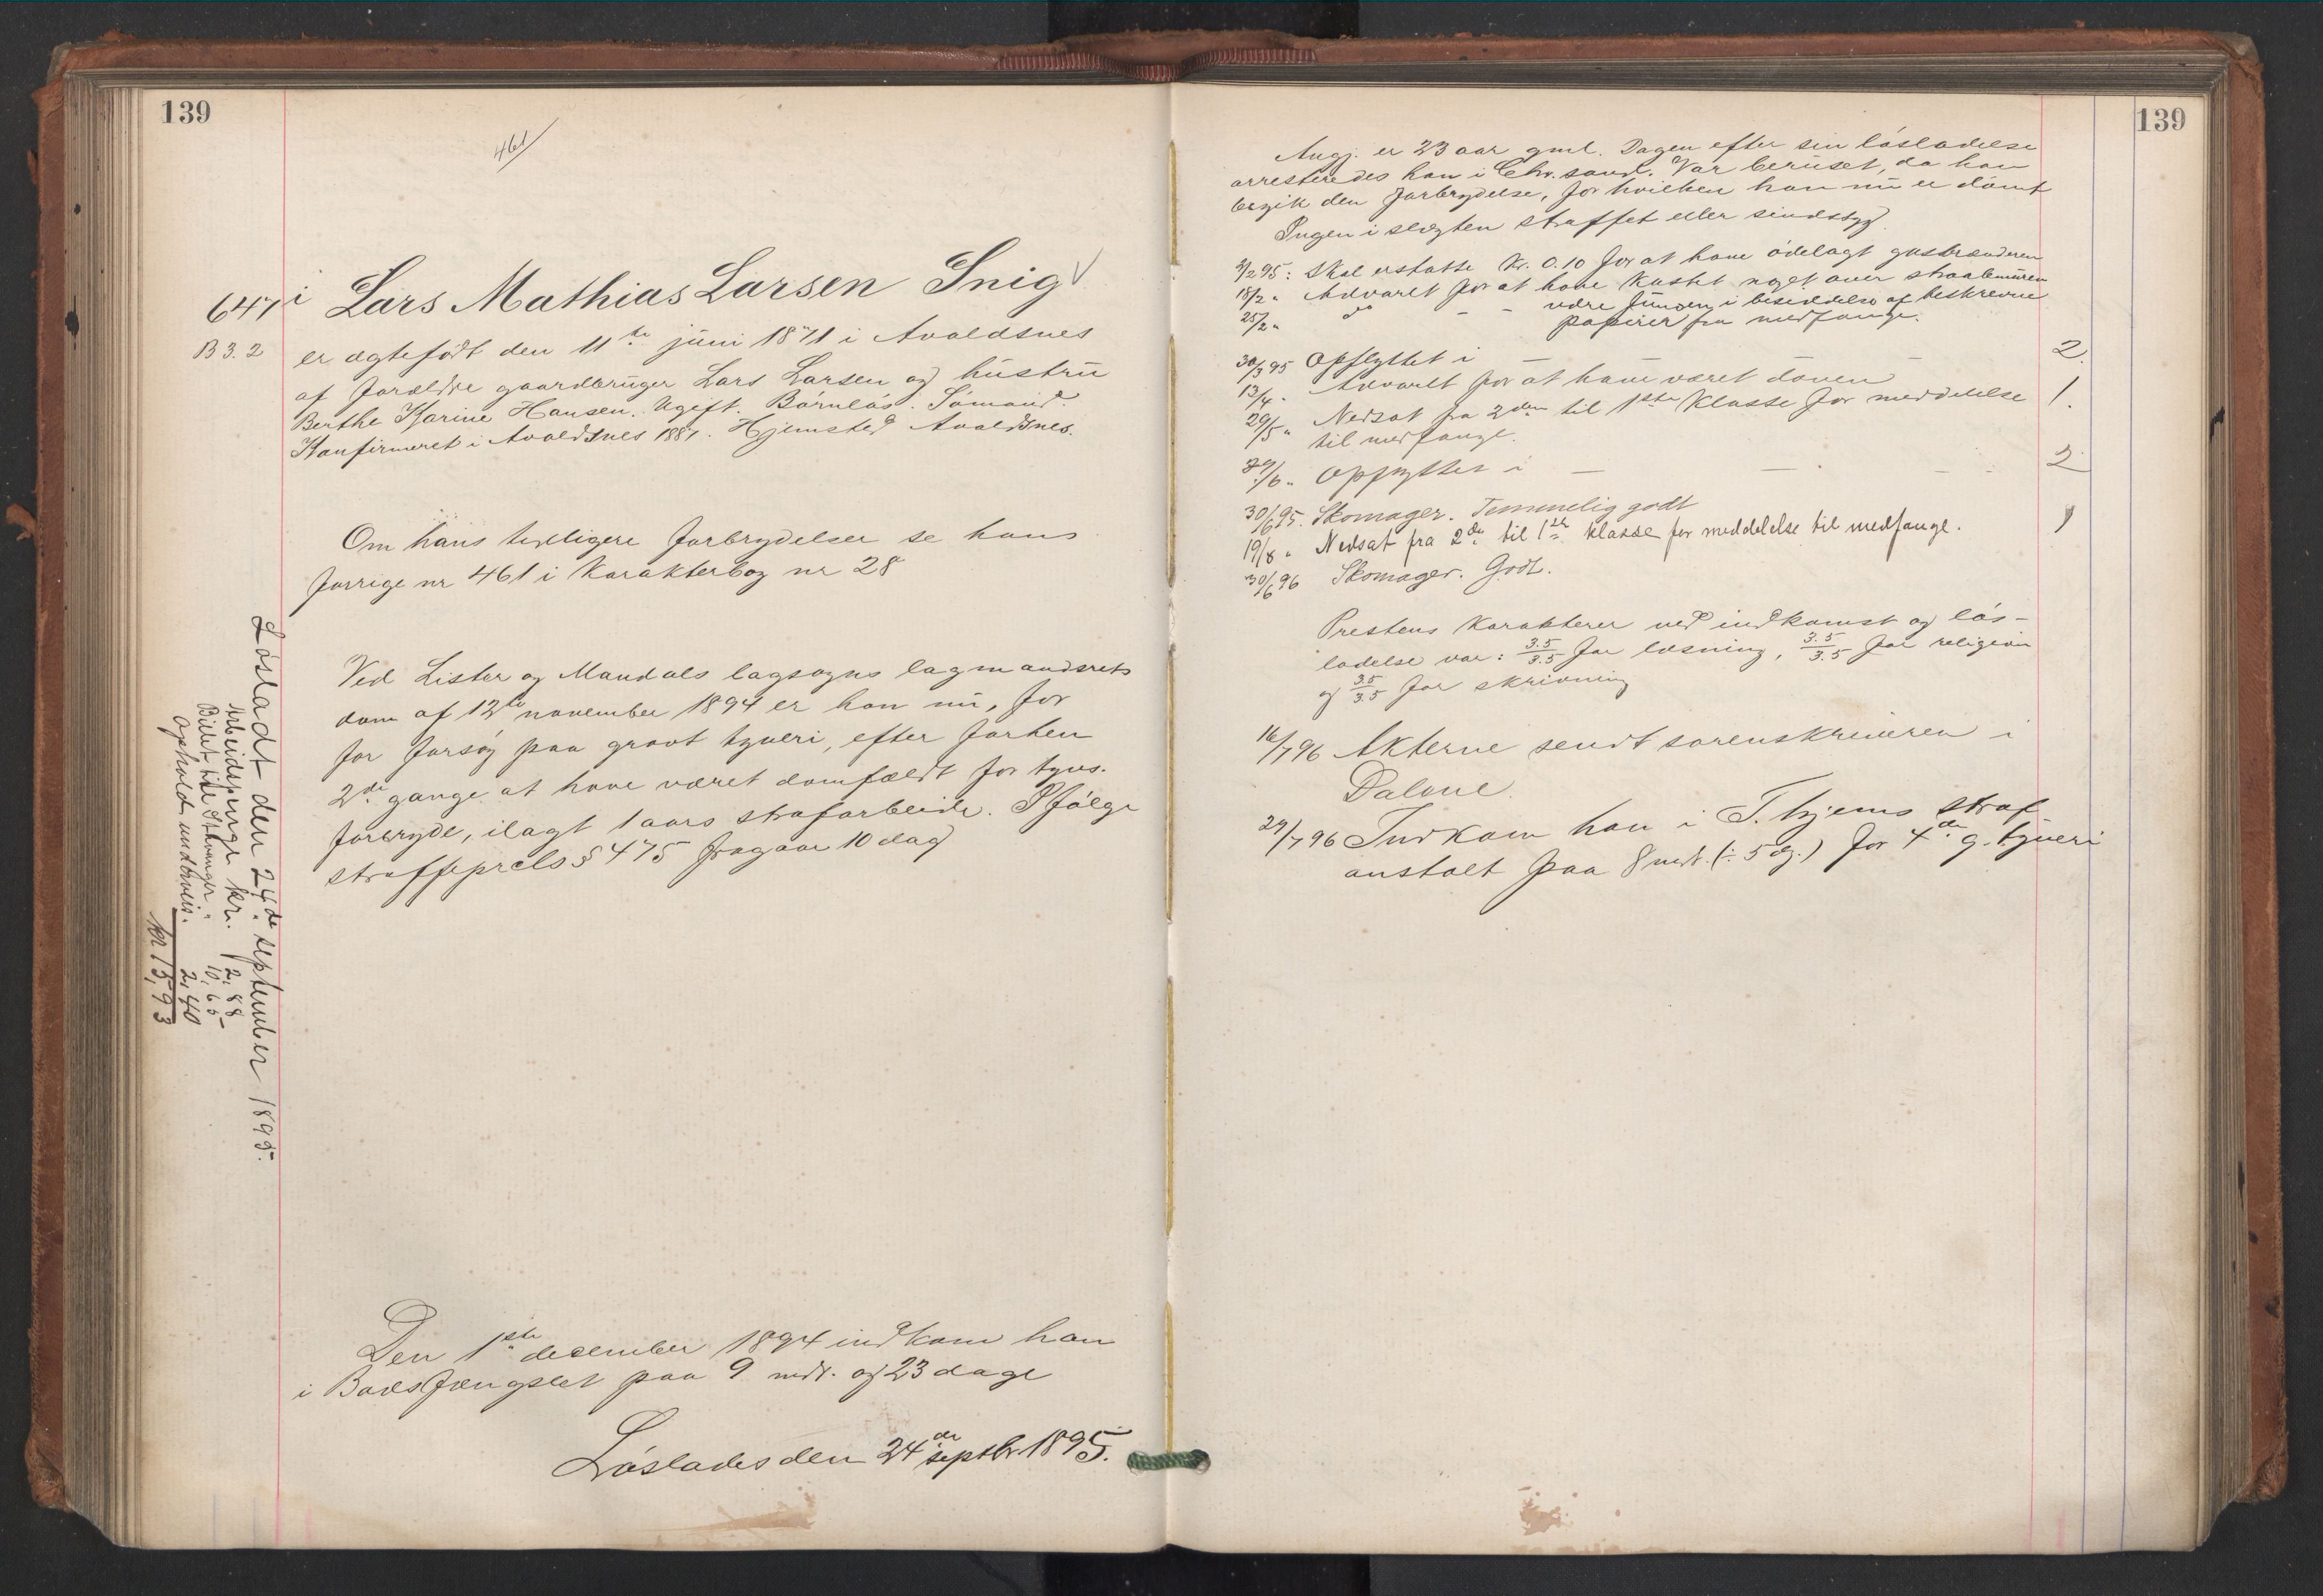 139
461
647 i Lars Mathias Larsen Snig
B 3. 2
er ægtefødt den 11te juni 1871 i Avaldsnes
af forældre gaardbruger Lars Larsen og hustru
Berthe Karine Hansen. Ugift. Børnløs. Sømand.
Konfirmeret i Avaldsnes 1887. Hjemsted Avaldsnes.
Om hans tidligere forbrydelser se hans
forrige nr 461 i Karakterbog nr 28
Ved Lister og Mandals lagsogns lagmandsrets
dom af 12te november 1894 er han nu, for
for forsøg paa grovt tyveri, efter forhen
2de gange at have været domfældt for tyvs-
forbryde, ilagt 1 aars strafarbeide. Ifølge
straffeprcls § 475 fragaar 10 dag
Løsladt den 24de september 1895.
Arbeidspenge kr. 2,88
Billet til Stavanger " 10,65
Ophold underveis. 2,40
Kr 15,93
Den 1ste december 1894 indkom han
i Bodsfængslet paa 9 mdr. og 23 dage
Løslades den 24de septbr. 1895.
139
Angj. er 23 aar gml. Dagen efter sin løsladelse
arresteredes han i Chr.sand. Var beruset, da han
begik den forbrydelse, for hvilken han nu er dømt
Ingen i slægten straffet eller sindssyg
2/2 95: Skal erstatte Kr. 0.10 for at have ødelagt gasbrænderen
18/2 " Advaret for at have kastet noget over straalemuren
25/2 " do - - være funden i besiddelse af beskrevne
papirer fra medfange.
30/3 95 Opflyttet i — — — 2.
13/4 " Advaret for at have været doven
29/5 " Nedsat fra 2den til 1ste Klasse for meddelelse 1.
til medfange.
29/6 " Opflyttet i — — — 2
30/6 95. Skomager. Temmelig godt
19/8 " Nedsat fra 2de til 1ste klasse for meddelelse til medfange. 1
30/6 96 Skomager. Godt.
Prestens Karakterer ved indkomst og løs-
ladelse var: 3.5/3.5 for læsning, 3.5/3.5 for religion
og 3.5/3.5 for skrivning
16/7 96 Akterne sendt sorenskriveren i
Dalene.
29/7 96 Indkom han i T.hjems straf
anstalt paa 8 mdr. (÷ 5 dg.) for 4de g. tyveri